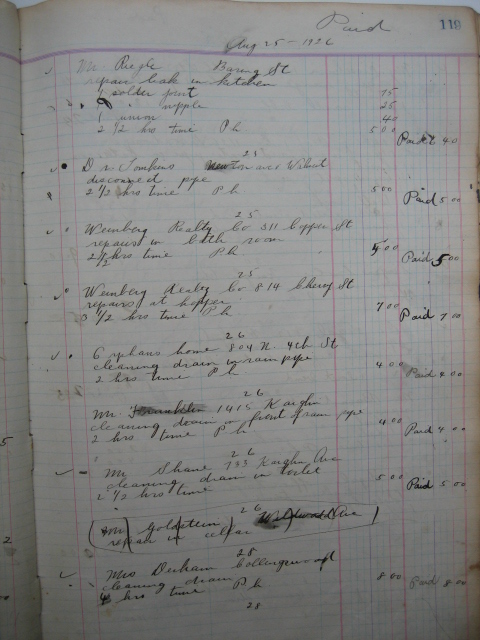 Paid 119
Aug 25 - 1926
Mr Riegle Baring St
repair leak in kitchen
1 solder joint 75
1 " nipple 25
1 union 40
2 1/2 hrs time Ph 5 00 Paid 6 40
25
Dr Tomkins and Wilnut
disconned pipe
2 1/2 hrs time Ph 5 00 Paid 5 00
25
Weinberg Realty Co 511 Copper St
repairs in bath room
2 1/2 hrs time Ph 5 00 Paid 5 00
25
Weinberg Realty Co 814 Cherry St
repairs at hopper
3 1/2 hrs time Ph 7 00 Paid 7 00
26
Orphans home 804 N. 4th St
cleaning drain in rain pipe
2 hrs time Ph 4 00 Paid 4 00
26
Mr Franklin 1415 Kaighn
cleaning drain in front rain pipe
2 hrs time Ph 4 00 Paid 4 00
26
Mr Shane 733 Kaighn Ave
cleaning drain in toilet
2 1/2 hrs time 5 00 Paid 5 00
26
Mr Goldstein Ave
repair in cellar
28
Mrs Durham Collingswood
cleaning drain
4 hrs time Ph 8 00 Paid 8 00
28
5
2